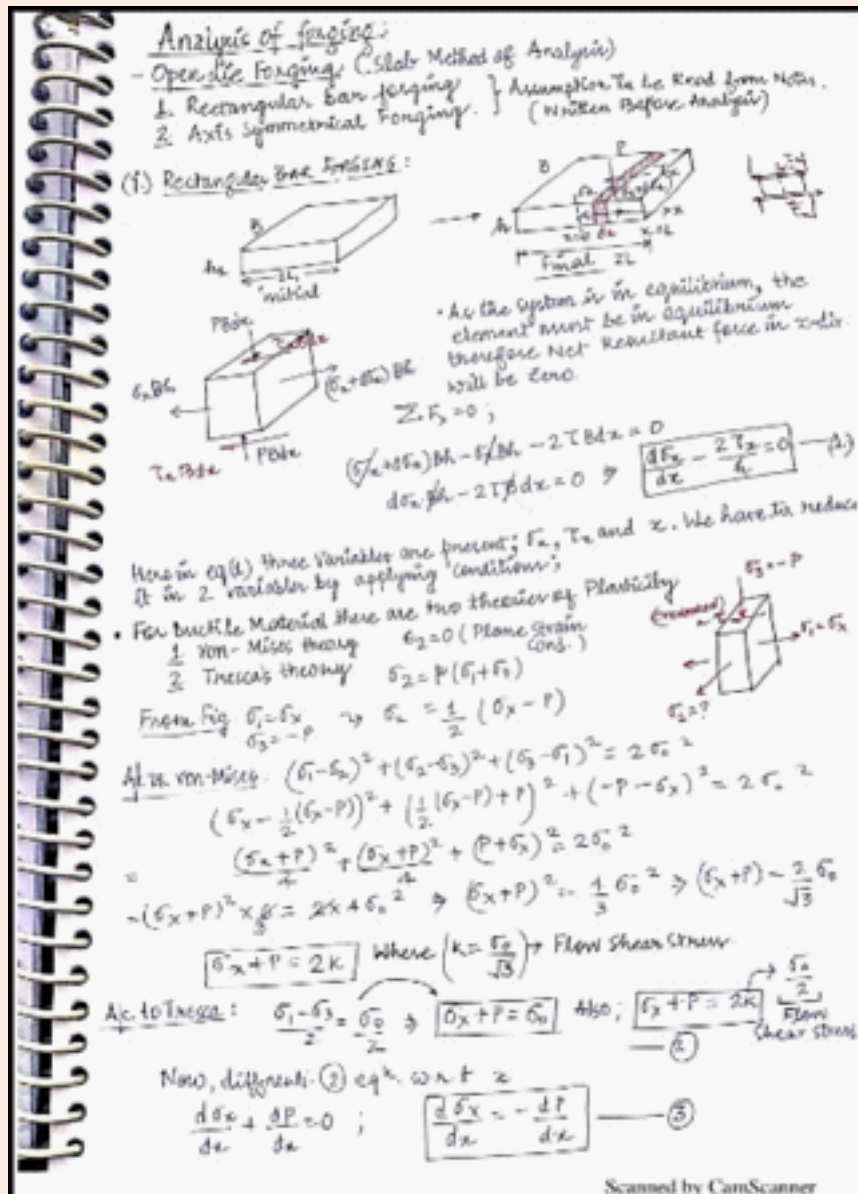 Analysis of forging:
- Open die Forging (Slab Method of Analysis)
1. Rectangular bar forging } Assumption to be Read from Notes.
2. Axis Symmetrical Forging. (Written Before Analysis)
(1.) Rectangular BAR FORGING:
B
h₁
2L₁
initial
B P
h
x=0 dx x=L
2L
Final
PBdx
σxBh
(σx+dσx)Bh
τxBdx
PBdx
• As the system is in equilibrium, the
element must be in equilibrium
therefore Net Resultant force in x-dir.
will be Zero.
Σ Fx = 0 ;
(σx+dσx)Bh - σxBh - 2τBdx = 0
dσx Bh - 2τBdx = 0 ⇒ dσx/dx - 2τx/h = 0 —(1.)
Here in eq(1) three variables are present; σx, τx and x. We have to reduce
it in 2 variables by applying conditions;
• For Ductile Material there are two theories of Plasticity
1 von-Mises theory ε2=0 (Plane Strain Cond.)
2 Tresca's theory σ2 = μ(σ1+σ3)
σ3=-P
σ1=σx
σ2=?
From Fig σ1=σx
σ3=-P → σ2 = 1/2 (σx-P)
A/c von-Mises. (σ1-σ2)² + (σ2-σ3)² + (σ3-σ1)² = 2σ0²
(σx - 1/2(σx-P))² + (1/2(σx-P)+P)² + (-P-σx)² = 2σ0²
= (σx+P)²/4 + (σx+P)²/4 + (P+σx)² = 2σ0²
=(σx+P)² × 6 = 2×4σ0² ⇒ (σx+P)² = 4/3 σ0² ⇒ (σx+P) = 2/√3 σ0
σx+P = 2k Where (k = σ0/√3) → Flow Shear Stress
A/c. to Tresca: σ1-σ3/2 = σ0/2 ⇒ σx+P = σ0 Also; σx+P = 2k → σ0/2
Flow
Shear Stress
— ②
Now, differenti. ② eqⁿ. w r t x
dσx/dx + dP/dx = 0 ; dσx/dx = - dP/dx — ③
Scanned by CamScanner